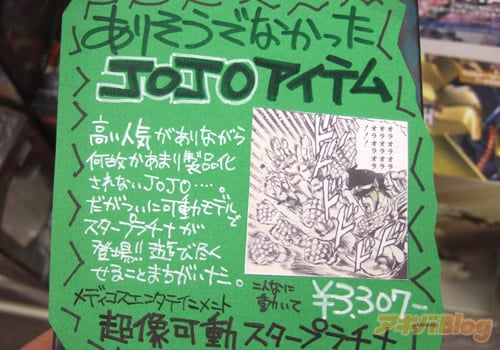 ありそうでなかった
JOJOアイテム
高い人気がありながら
何故かあまり製品化
されないJOJO….。
だがついに可動モデルで
スタープラチナが
登場!!遊び尽く
せることまちがいた。
オラオラオラオラ
オラオラオラオラ
オラオラオラ!
ドドドド
メディコスエンタテインメント
こんなに
動いて
¥3,307-
超像可動スタープラチナ
アキバBlog